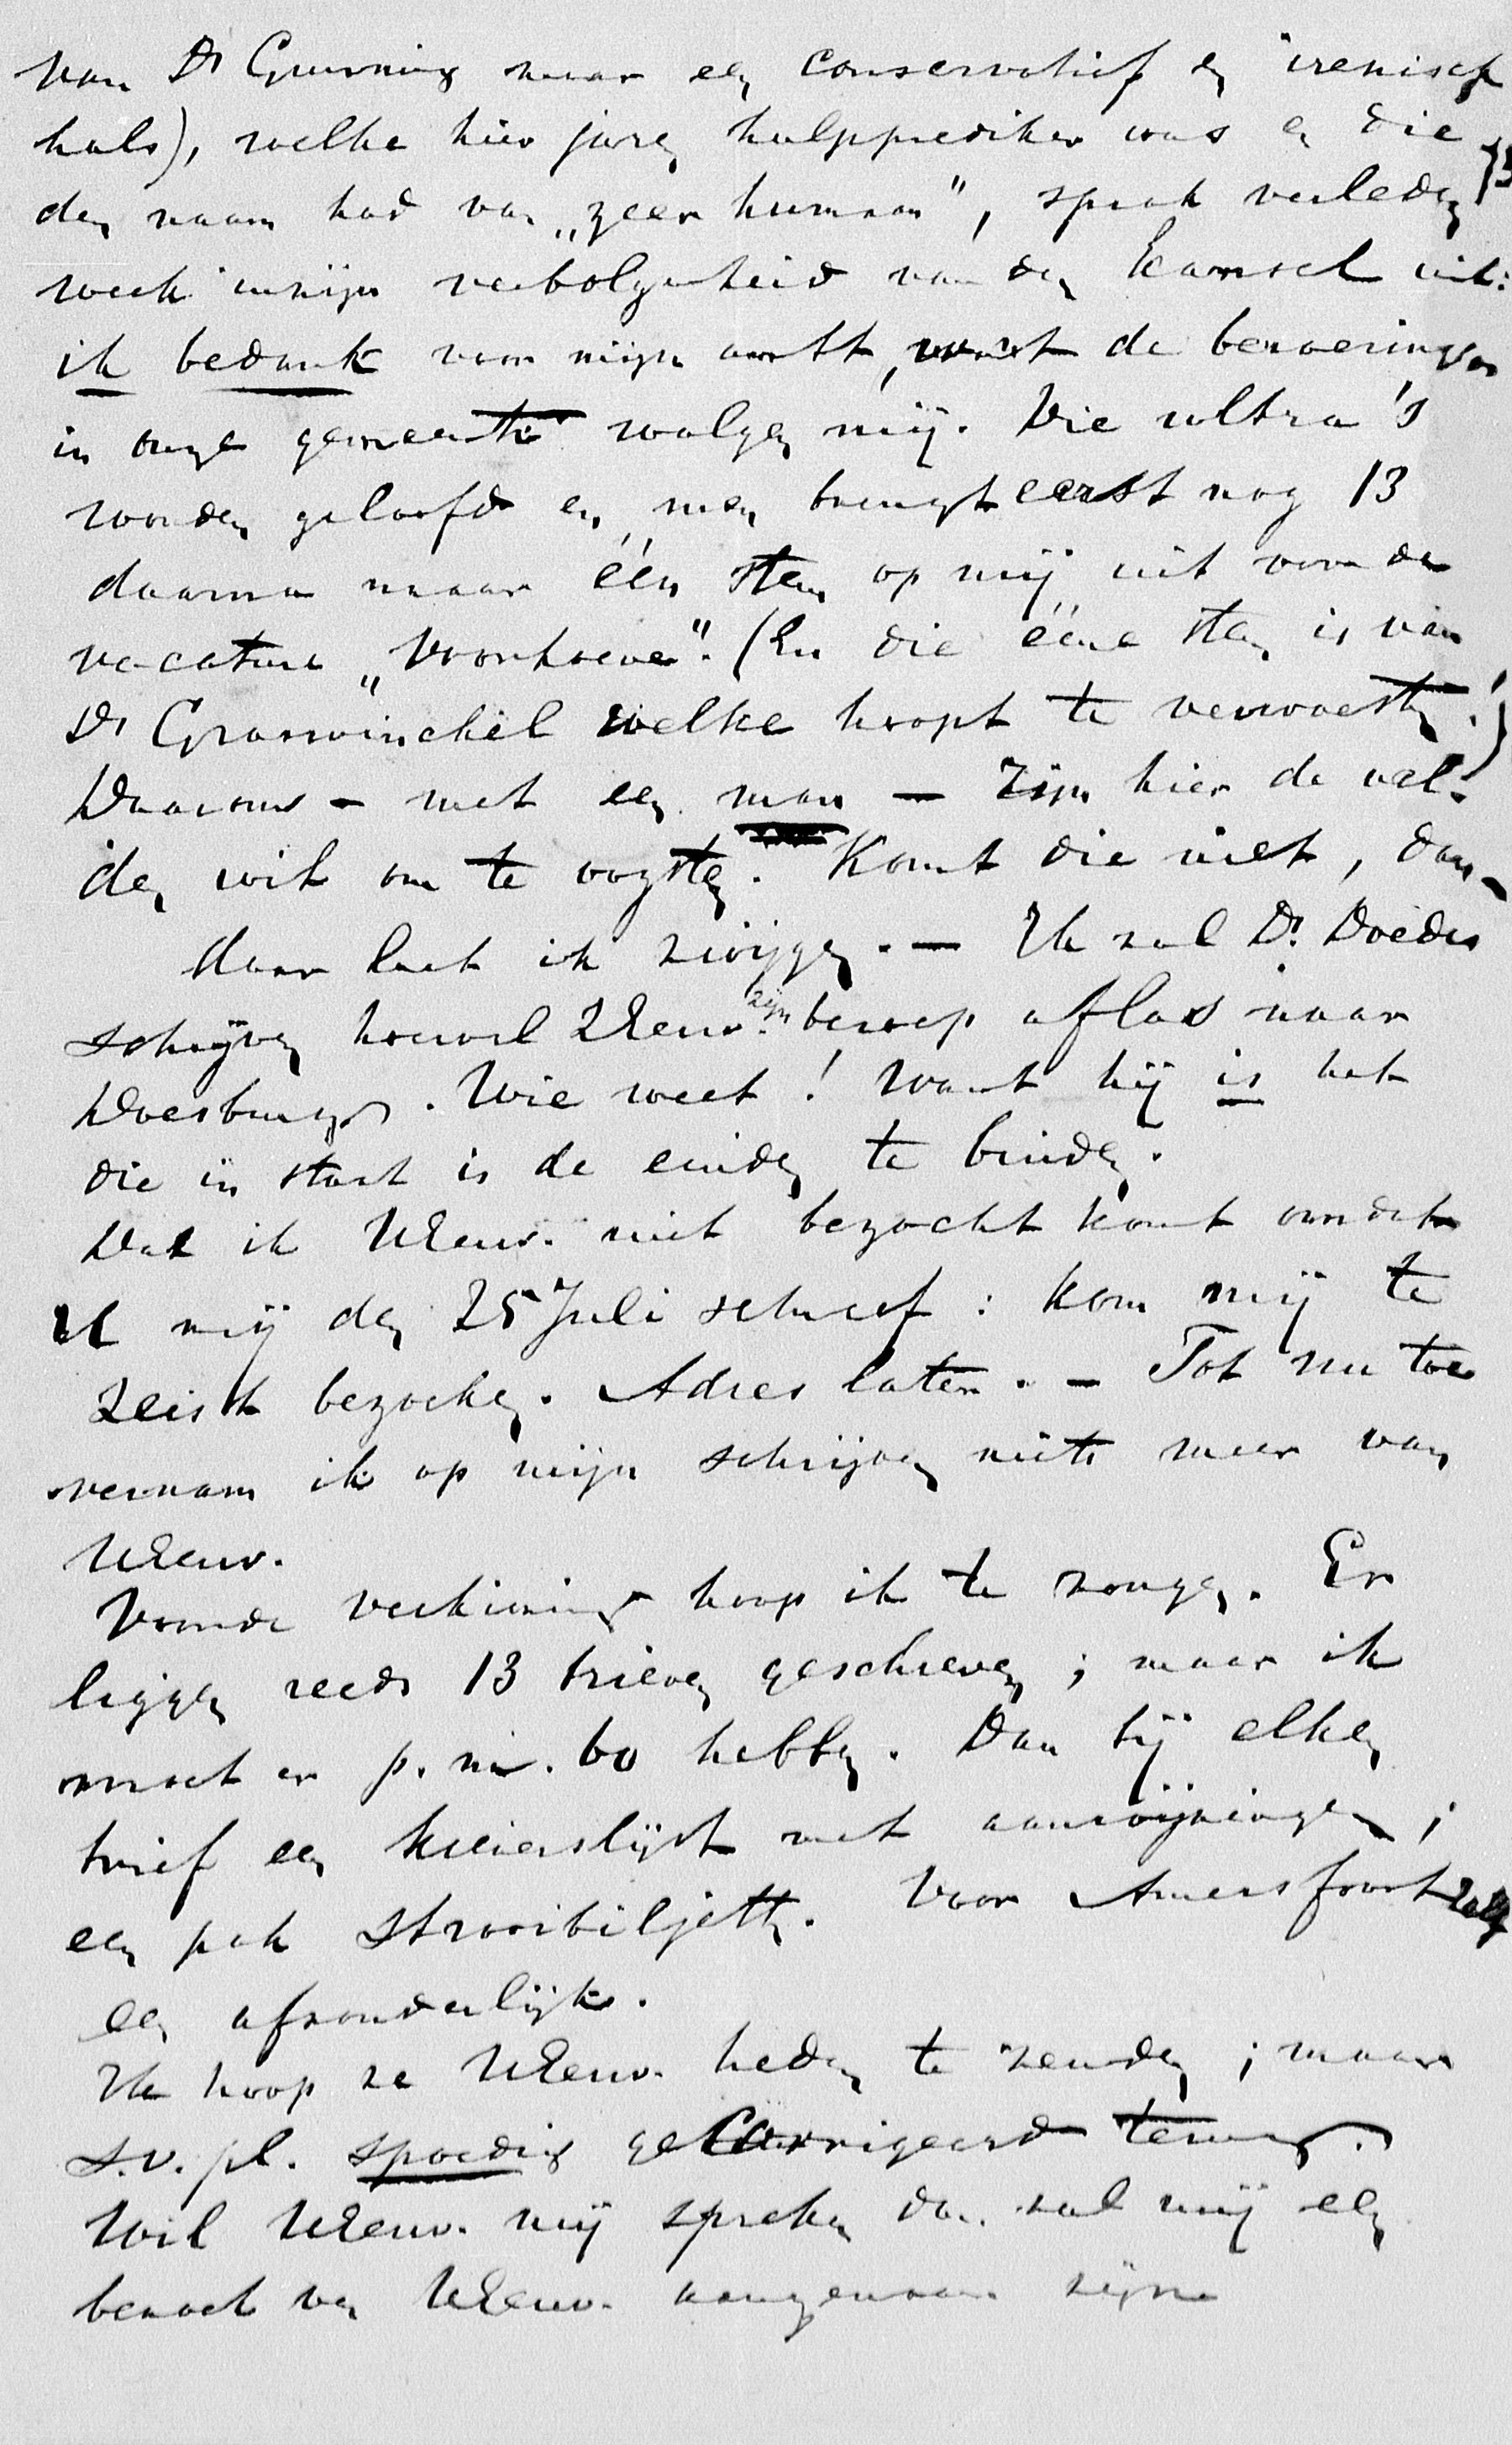 van Ds Gunning maar een conservatief en irenisch
hals), welke hier jaren hulpprediker was en die
den naam had van „zeer humaan", sprak verleden
week in zijn verbolgenheid van den kansel uit:
ik bedank voor mijn ambt, want de beroeringen
in onze gemeente walgen mij. Die ultra's
worden geloofd en men brengt eerst nog 13
daarna maar één stem op mij uit voor de
vacature „Voorhoeve". (En die ééne stem is van
Ds Graswinckel welke hoopt te verwoesten!)
Daarom - met een man - zijn hier de vel-
den wit om te oogsten. Komt die niet, dan -
daar laat ik zwijgen. - Ik zal Dr. Doedes
schrijven hoewel UEew. zijn beroep aflas naar
Doesburgh. Wie weet! Want hij is het
die in staat is de einden te binden.
Dat ik UEew. niet bezocht komt omdat
U mij den 25 Juli schreef: kom mij te
Zeist bezoeken. Adres later. - Tot nu toe
vernam ik op mijn schrijven niets meer van
UEew.
Voor de verkiezing hoop ik te zorgen. Er
liggen reeds 13 brieven geschreven; maar ik
moet er p.m. 60 hebben. Dan bij elken
brief een kiezerslijst met aanwijzingen;
een pak strooibiljetten. Voor Amersfoort zelf
een afzonderlijke.
Ik hoop ze UEew. heden te zenden; maar
s.v.pl. spoedig gecorrigeerd terug.
Wil UEew. mij spreken dan zal mij een
bezoek van UEew. aangenaam zijn